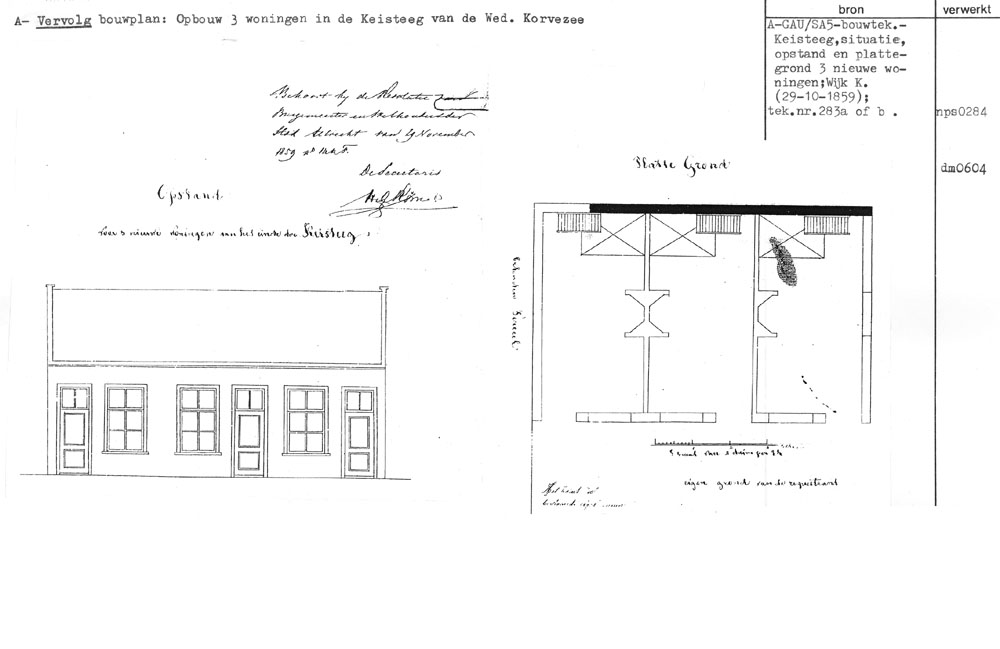 A- Vervolg bouwplan: Opbouw 3 woningen in de Keisteeg van de Wed. Korvezee
bron
verwerkt
A-GAU/SA5-bouwtek.-
Keisteeg,situatie,
opstand en platte-
grond 3 nieuwe wo-
ningen;Wijk K.
(29-10-1859);
tek.nr.283a of b .
nps0284
dm0604
Behoort bij de Resolutie van
Burgemeester en Wethouders der
Stad Utrecht van 29 November
1859
De Secretaris
Opstand
voor 3 nieuwe woningen aan het einde der Keisteeg
Platte Grond
eigen grond van de requestrant